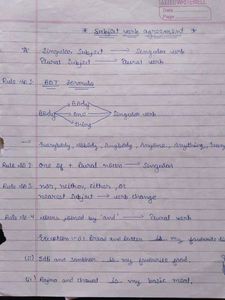 Date
Page
* Subject verb agreement *
A. Singular Subject → Singular verb
Plural Subject → Plural verb
Rule No:1 BOT Formula
Body
Body one Singular verb
thing
→ Everybody, Nobody, Anybody, Anyone, Anything, Every
Rule No:2 One of + Plural noun → Singular
Rule No:3 nor, neither, either, or
nearest Subject → verb change
Rule No:4 joined by 'and' → Plural verb
Exception :- Bread and butter is my favourite
(ii) Idli and sambhar is my favourite food.
(iii) Rajma and chawal is my basic meal.